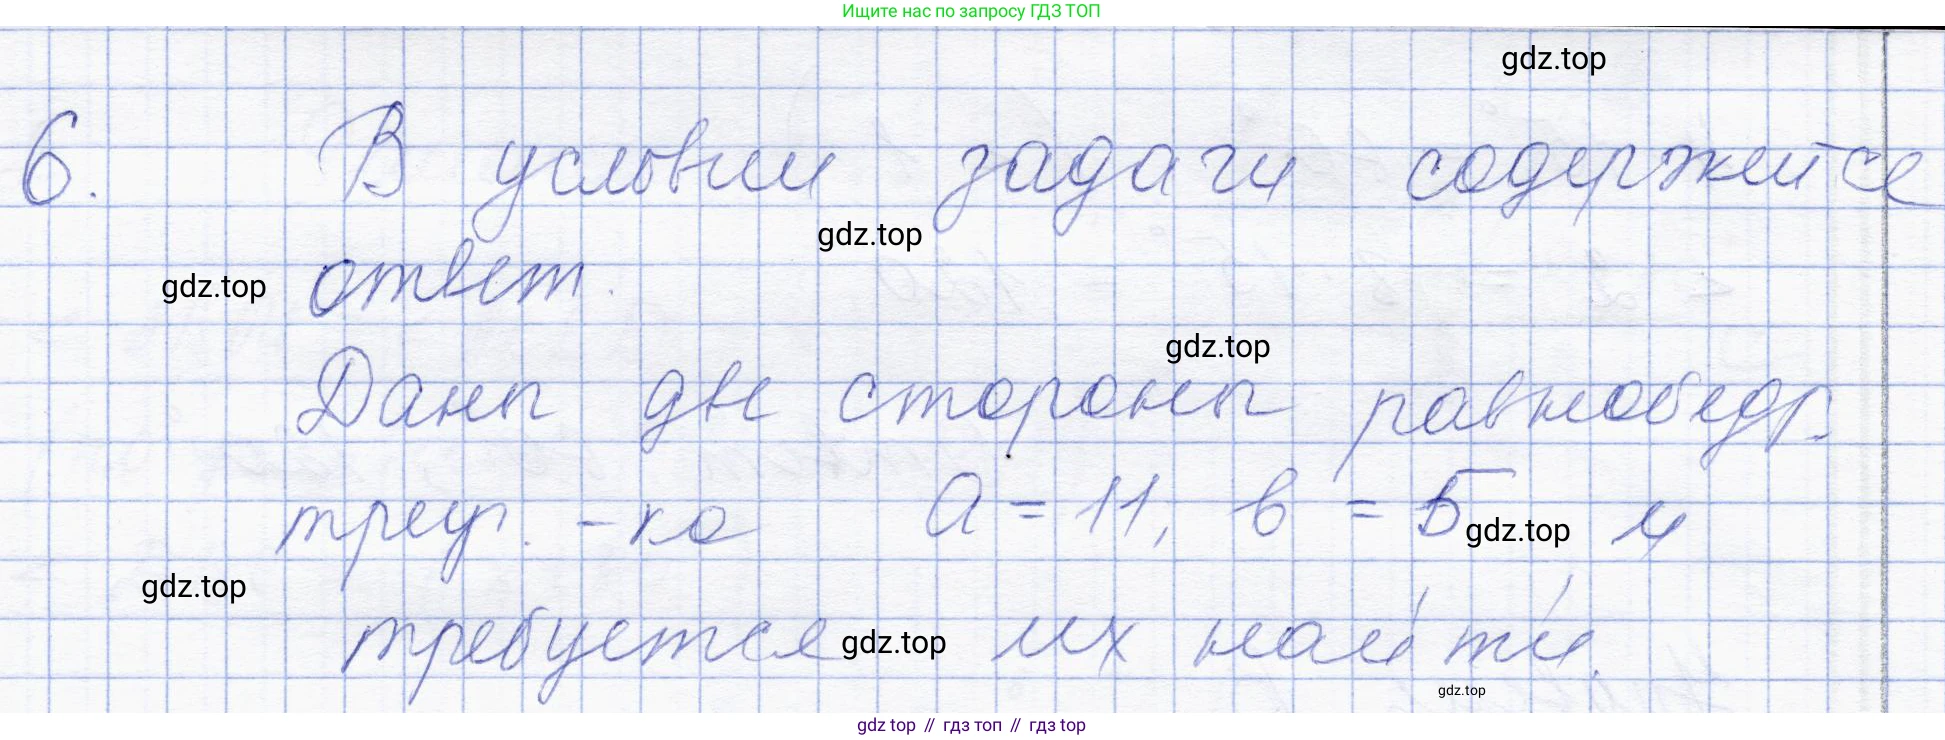 Ищите нас по запросу ГДЗ ТОП
gdz.top
6. В условии задачи содержится
gdz.top
ответ.
gdz.top
gdz.top
Даны две стороны равнобедр.
треуг.-ка а = 11, в = 5 и
gdz.top
gdz.top
требуется их найти.
gdz.top
gdz.top
gdz top // гдз топ // гдз top